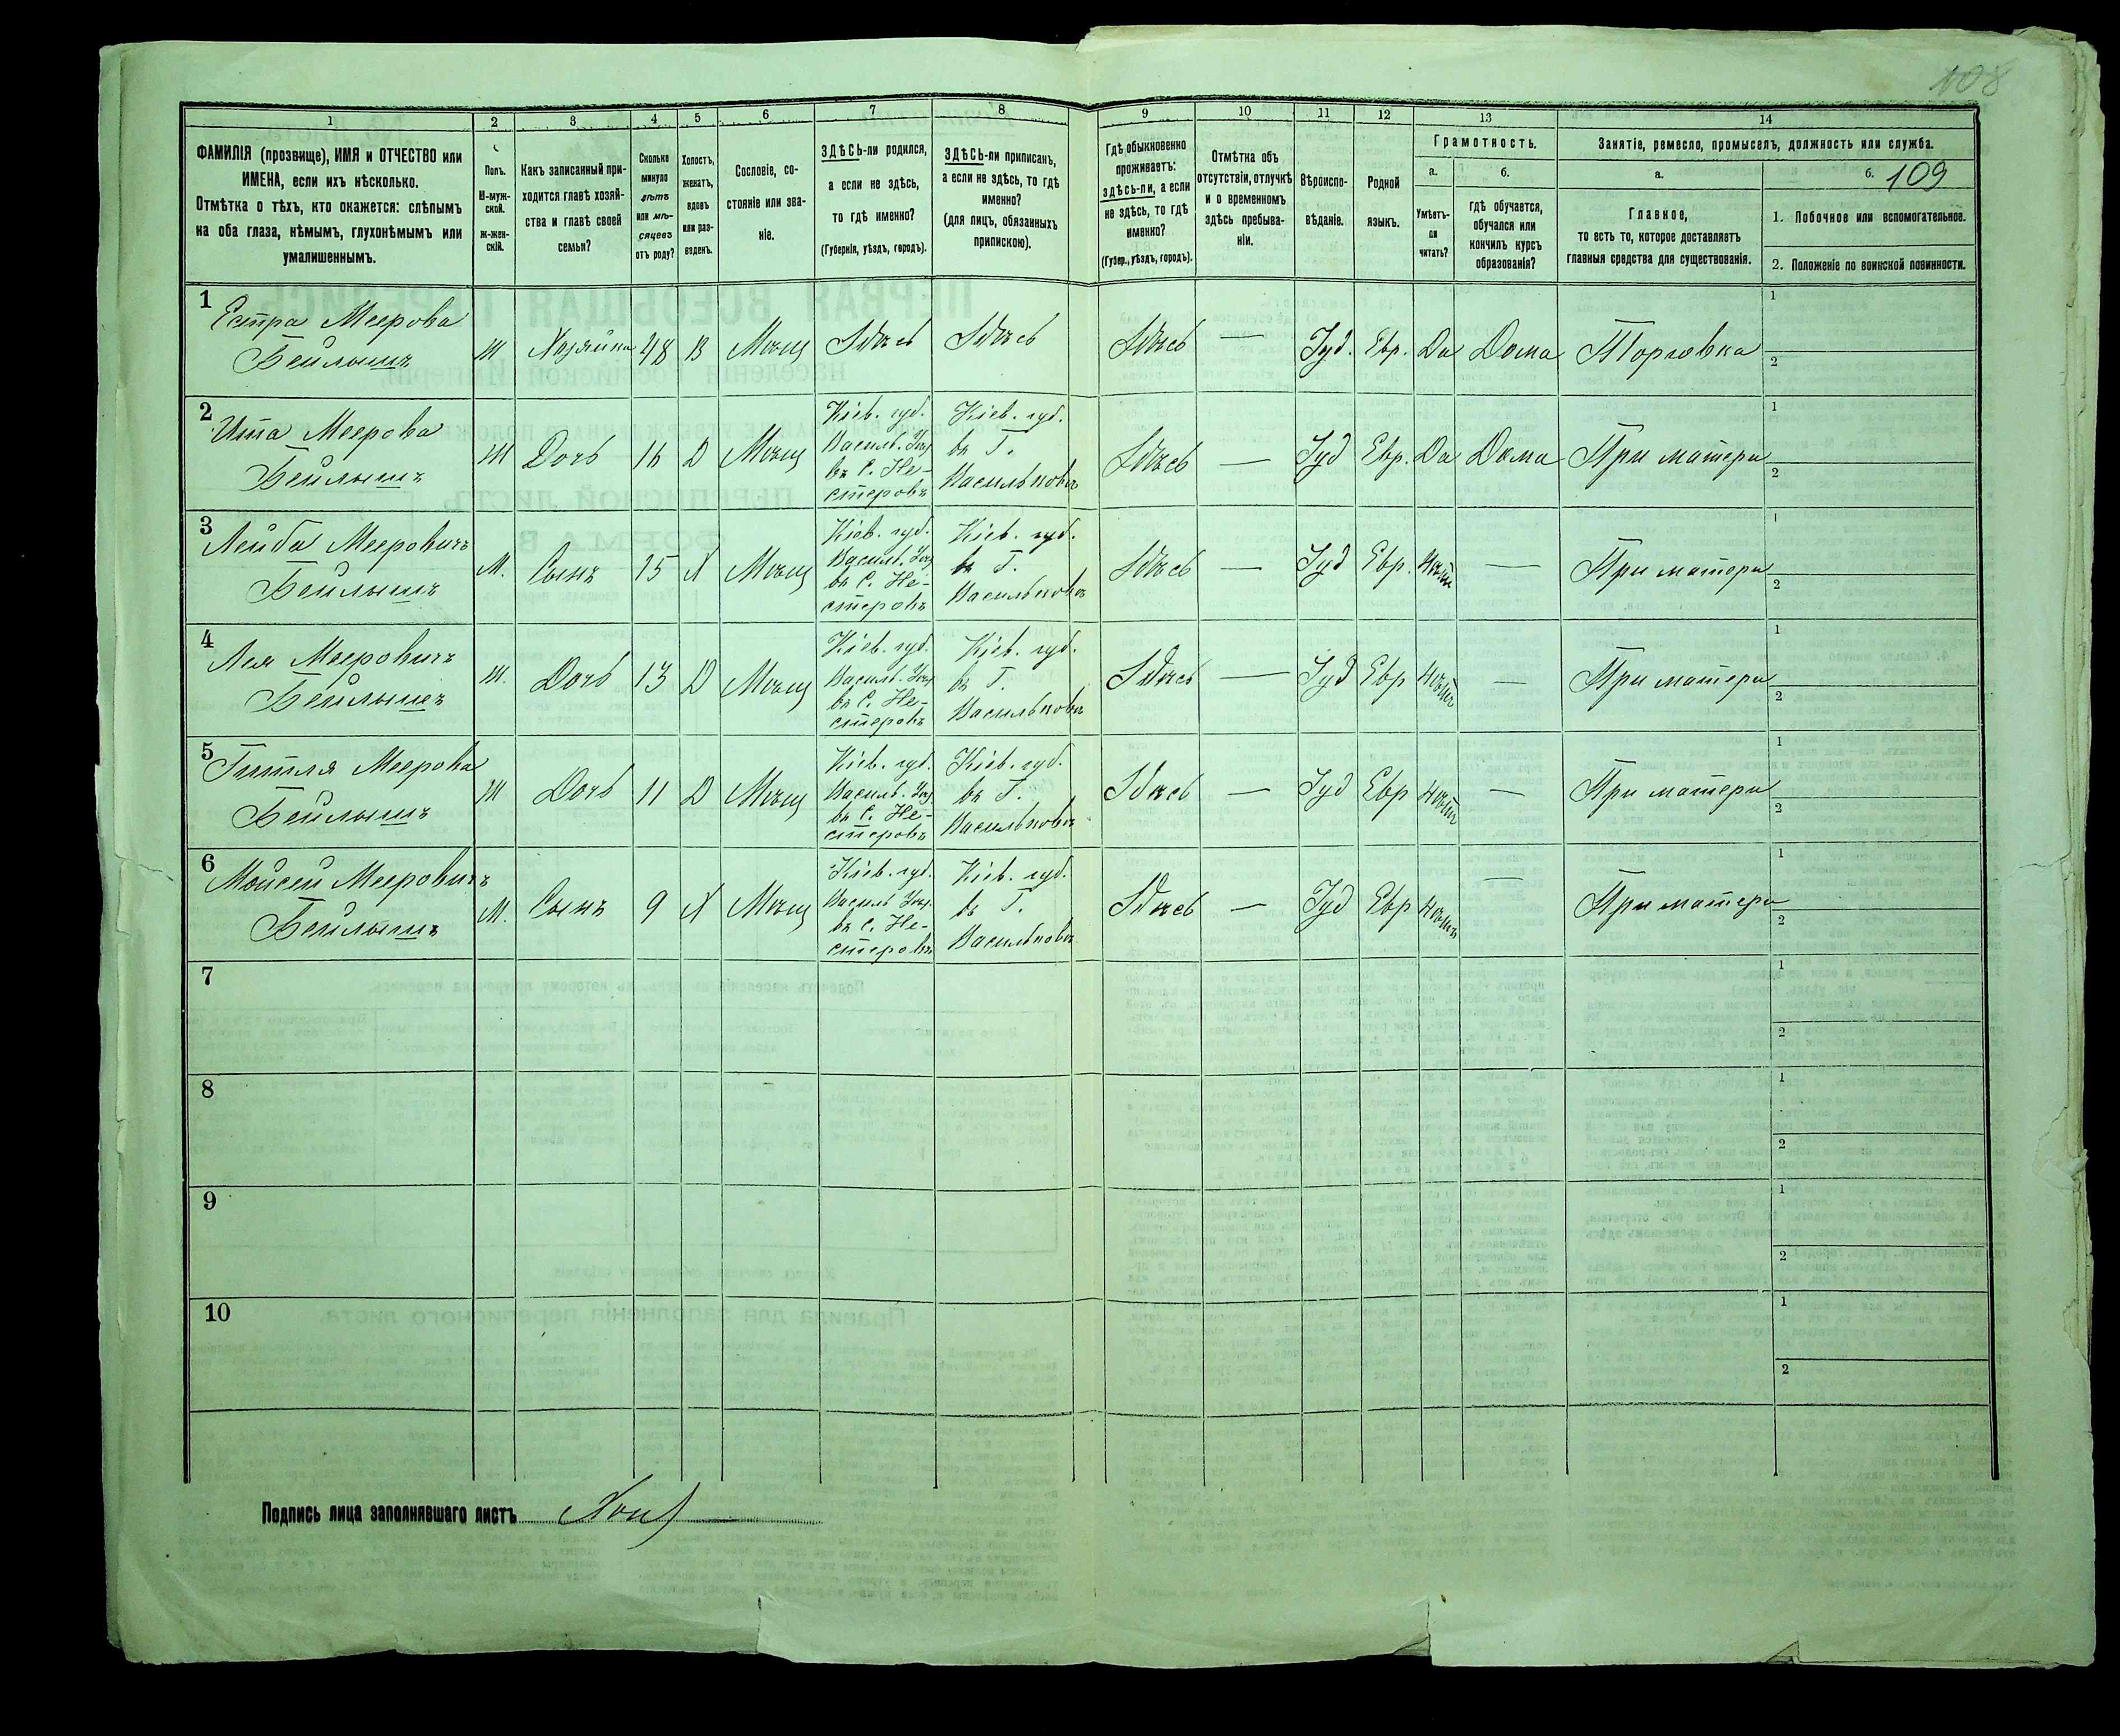 108
1 2 3 4 5 6 7 8 9 10 11 12 13 14
ФАМИЛІЯ (прозвище), ИМЯ и ОТЧЕСТВО или
ИМЕНА, если ихъ нѣсколько.
Отмѣтка о тѣхъ, кто окажется: слѣпымъ
на оба глаза, нѣмымъ, глухонѣмымъ или
умалишеннымъ.
Полъ.
М-муж-
ской.
Ж-жен-
скій.
Какъ записанный при-
ходится главѣ хозяй-
ства и главѣ своей
семьи?
Сколько
минуло
лѣтъ
или мѣ-
сяцевъ
отъ роду?
Холостъ,
женатъ,
вдовъ
или раз-
веденъ.
Сословіе, со-
стояніе или зва-
ніе.
ЗДѢСЬ-ли родился,
а если не здѣсь,
то гдѣ именно?
(Губернія, уѣздъ, городъ).
ЗДѢСЬ-ли приписанъ,
а если не здѣсь, то гдѣ
именно?
(для лицъ, обязанныхъ
припискою).
Гдѣ обыкновенно
проживаетъ:
здѣсь-ли, а если
не здѣсь, то гдѣ
именно?
(Губер., уѣздъ, городъ).
Отмѣтка объ
отсутствіи, отлучкѣ
и о временномъ
здѣсь пребыва-
ніи.
Вѣроиспо-
вѣданіе.
Родной
языкъ.
Грамотность.
а.
Умѣетъ-
ли
читать?
б.
гдѣ обучается,
обучался или
кончилъ курсъ
образованія?
Занятіе, ремесло, промыселъ, должность или служба.
а.
Главное,
то есть то, которое доставляетъ
главныя средства для существованія.
б. 109
1. Побочное или вспомогательное.
2. Положеніе по воинской повинности.
1
Естра Меерова
Бейлышъ
Ж Хозяйка 48 В Мѣщ Здѣсь Здѣсь Здѣсь — Іуд. Евр. Да Дома Торговка
1
2
2
Ита Меерова
Бейлышъ
Ж Дочь 16 Д Мѣщ
Кіев. губ.
Василь. Уѣз
въ С. Не-
стеровъ
Кіев. губ.
въ Г.
Васильковъ
Здѣсь — Іуд Евр. Да Дома При матери
1
2
3
Лейба Мееровичъ
Бейлышъ
М. Сынъ 15 Х Мѣщ
Кіев. губ.
Василь. Уѣз
въ С. Не-
стеровъ
Кіев. губ.
въ Г.
Васильковъ
Здѣсь — Іуд Евр. Нѣтъ — При матери
1
2
4
Лея Мееровичъ
Бейлышъ
Ж. Дочь 13 Д Мѣщ
Кіев. губ.
Василь. Уѣз
въ С. Не-
стеровъ
Кіев. губ.
въ Г.
Васильковъ
Здѣсь — Іуд Евр Нѣтъ — При матери
1
2
5
Гитля Меерова
Бейлышъ
Ж Дочь 11 Д Мѣщ
Кіев. губ.
Василь. Уѣз
въ С. Не-
стеровъ
Кіев. губ.
въ Г.
Васильковъ
Здѣсь — Іуд Евр Нѣтъ — При матери
1
2
6
Мойсей Мееровичъ
Бейлышъ
М. Сынъ 9 Х Мѣщ
Кіев. губ.
Василь Уѣз.
въ С. Не-
стеровъ
Кіев. губ.
въ Г.
Васильковъ
Здѣсь — Іуд Евр Нѣтъ — При матери
1
2
7
1
2
8
1
2
9
1
2
10
1
2
Подпись лица заполнявшаго листъ